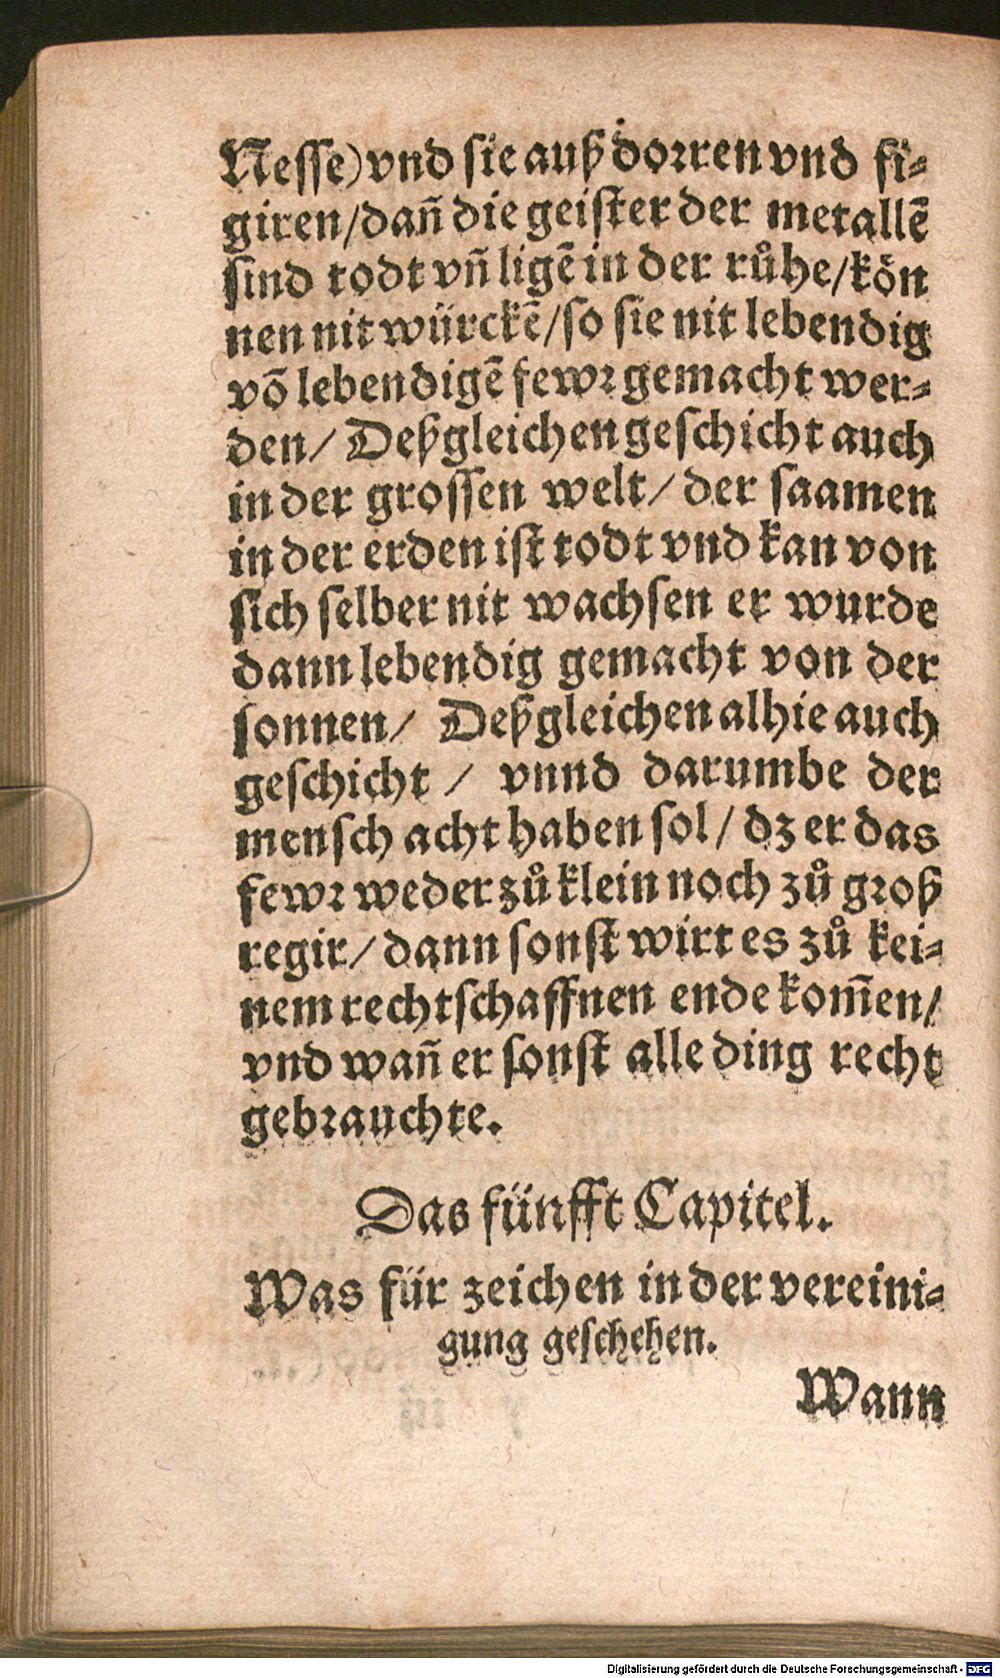 Nesse) vnd sie außdorren vnd fi-
giren/dañ die geister der metallē
sind todt vñ ligē in der růhe/kön
nen nit würckē/so sie nit lebendig
võ lebendigē fewr gemacht wer-
den/ Deßgleichen geschicht auch
in der grossen welt/ der saamen
in der erden ist todt vnd kan von
sich selber nit wachsen er wurde
dann lebendig gemacht von der
sonnen/ Deßgleichen alhie auch
geschicht / vnnd darumbe der
mensch acht haben sol/ dz er das
fewr weder zů klein noch zů groß
regir/ dann sonst wirt es zů kei-
nem rechtschaffnen ende kom̄en/
vnd wañ er sonst alle ding recht
gebrauchte.
Das fünfft Capitel.
Was für zeichen in der vereini-
gung geschehen.
Wann
Digitalisierung gefördert durch die Deutsche Forschungsgemeinschaft - DFG